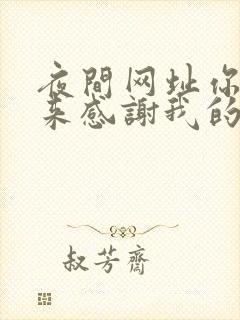 夜間网址你
来感謝我的
叔芳齋